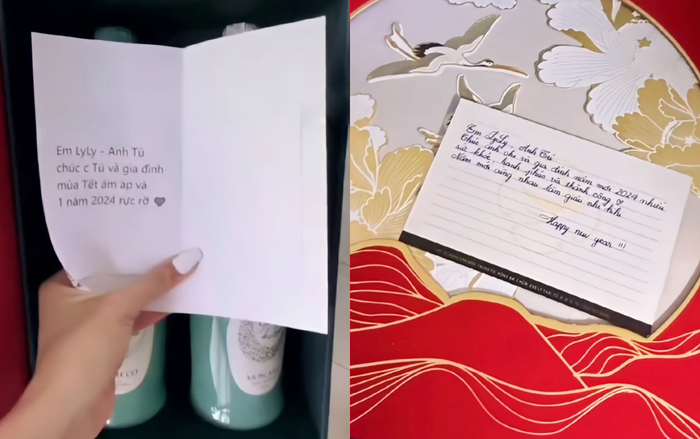 Em LyLy - Anh Tú
chúc c Tú và gia đình
mùa Tết ấm áp và
1 năm 2024 rực rỡ 🖤
Em LyLy - Anh Tú
Chúc anh chị và gia đình năm mới 2024 nhiều
sức khoẻ, hạnh phúc và thành công
Năm mới cùng nhau làm giàu như
Happy new year !!!